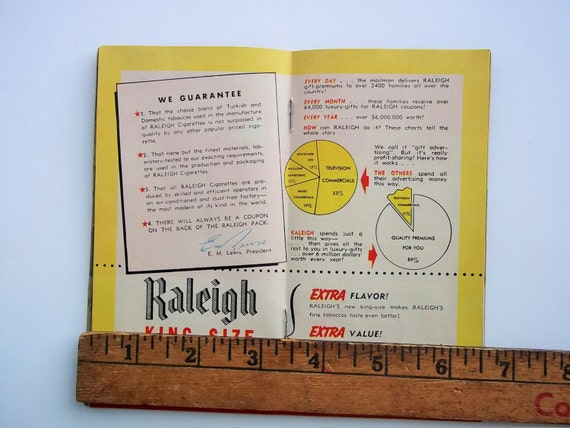 WE GUARANTEE
★1. That the choice blend of Turkish and
Domestic tobaccos used in the manufacture
of RALEIGH Cigarettes is not surpassed in
quality by any other popular priced ciga-
rette.
★2. That none but the finest materials, lab-
oratory-tested to our exacting requirements,
are used in the production and packaging
of RALEIGH Cigarettes.
★3. That all RALEIGH Cigarettes are pro-
duced by skilled and efficient operators in
an air-conditioned and dust-free factory—
the most modern of its kind in the world.
★4. THERE WILL ALWAYS BE A COUPON
ON THE BACK OF THE RALEIGH PACK.
E. M. Lewis
E. M. Lewis, President
Raleigh
KING SIZE
EVERY DAY . . . the mailman delivers RALEIGH
gift-premiums to over 2400 families all over the
country!
EVERY MONTH . . . these families receive over
64,000 luxury-gifts for RALEIGH coupons!
EVERY YEAR . . . over $6,000,000 worth!
HOW can RALEIGH do it? These charts tell the
whole story . . .
TELEVISION
COMMERCIALS
59%
We call it "gift adver-
tising". But it's really
profit-sharing! Here's how
it works . . .
THE OTHERS spend all
their advertising money
this way.
RALEIGH spends just a
little this way—
. . . then gives all the
rest to you in luxury-gifts
. . . over 6 million dollars'
worth every year!
TELEVISION
COMMERCIALS
QUALITY PREMIUMS
FOR YOU
89%
EXTRA FLAVOR!
RALEIGH'S new king-size makes RALEIGH'S
fine tobaccos taste even better!
EXTRA VALUE!
1 2 3 4 5 6 7 8
Co